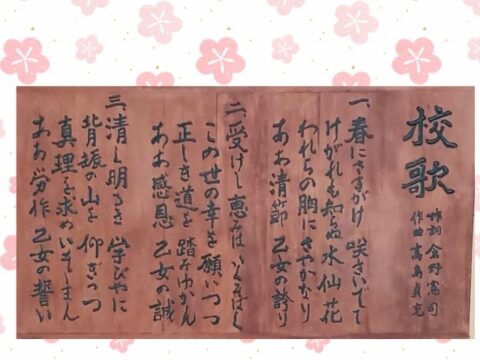 校歌
作詞 倉野憲司
作曲 髙島貞光
一、春にさきがけ 咲きいでて
けがれも知らぬ 水仙花
われらの胸に さやかなり
ああ清節 乙女の誇り
二、受けし恵みは いくそばく
この世の幸を 願いつつ
正しき道を 踏みゆかん
ああ感恩 乙女の誠
三、清く明るき 学びやに
背振の山を 仰ぎつつ
真理を求め いそしまん
ああ労作 乙女の誓い